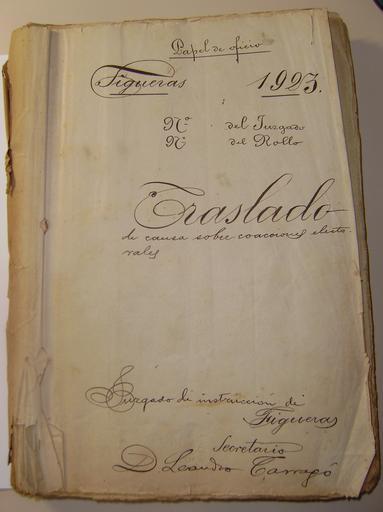 Papel de oficio
Figueras 1923.
Nº del Juzgado
Nº del Rollo
Traslado
de causa sobre coacciones electo-
rales
Juzgado de instrucción de
Figueras
Secretario
D. Leandro Tarragó